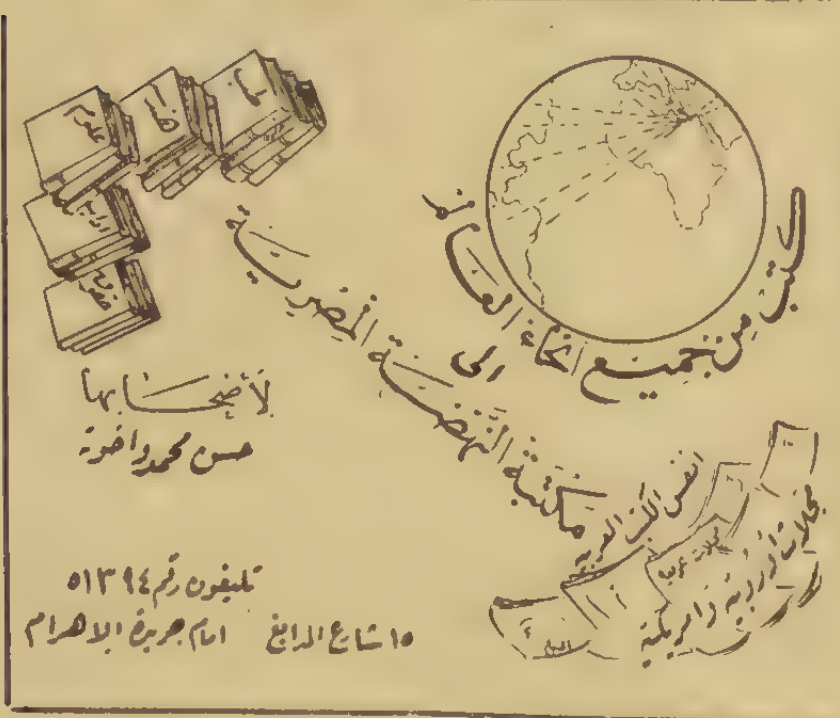 كتب من جميع انحاء العالم
الى
مكتبة النهضة المصرية
لأصحابها
حسن محمد واخوته
علوم
هندسة
ادب
انفس الكتب العربية
مجلات عربية
مجلات اوروبية وامريكية
تليفون رقم ٥١٣٩٤
١٥ شارع المدابغ امام جريدة الاهرام